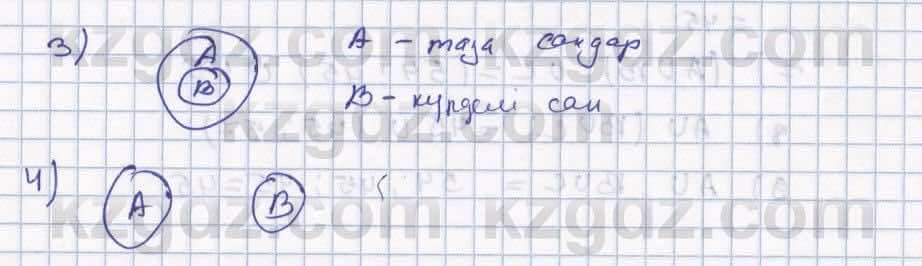 3) A B A - таза сандар
B - күрделі сан
4) A B
kzgdz.com kzgdz.com
kzgdz.com
kzgdz.com kzgdz.com